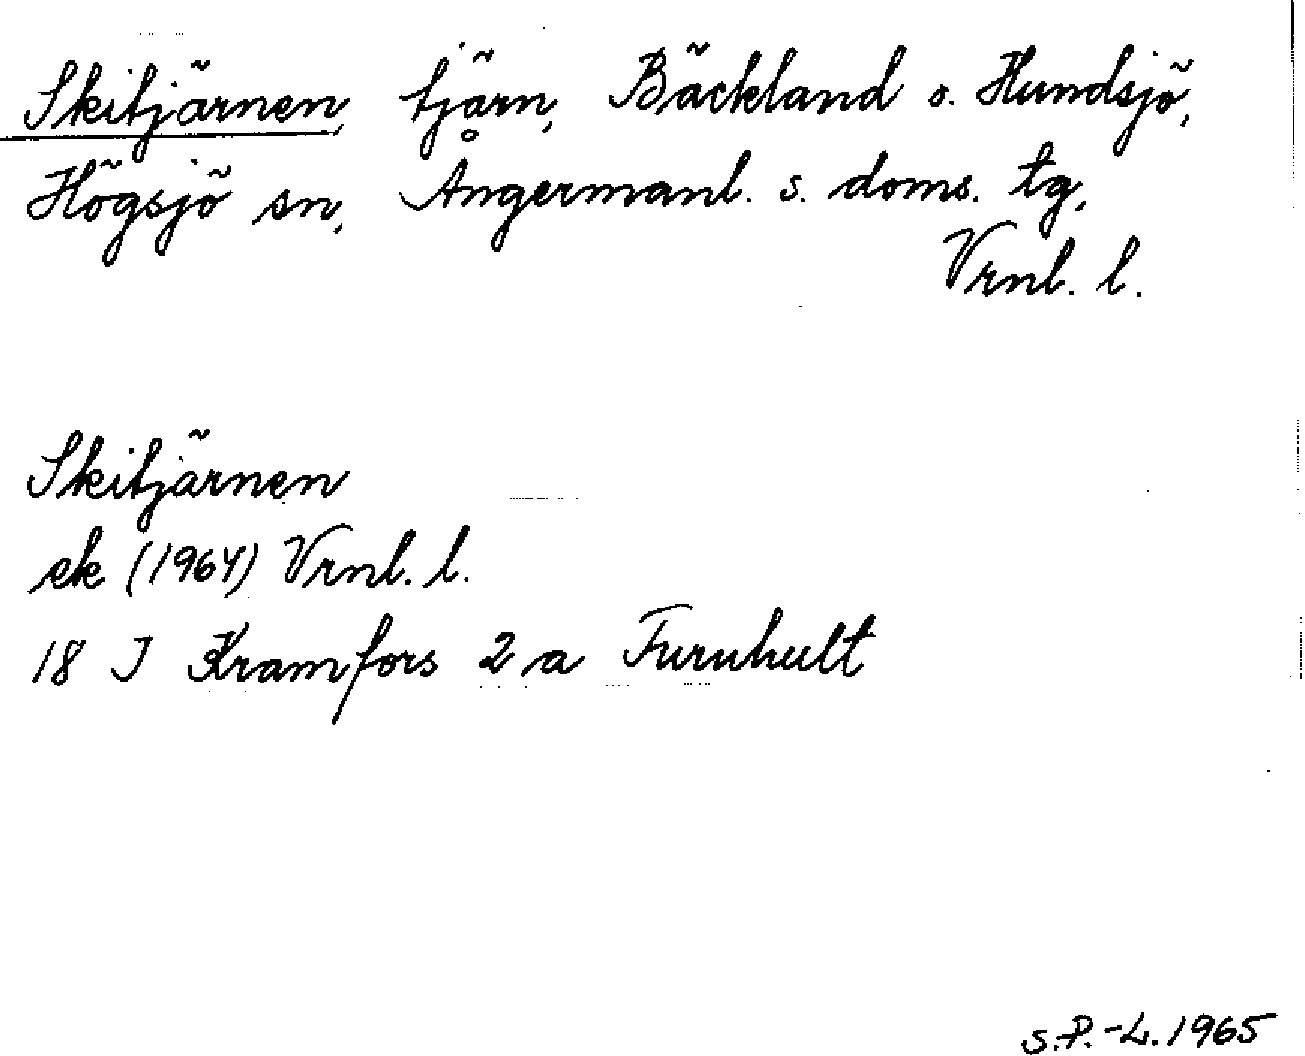 Skitjärnen, tjärn, Bäckland o. Hundsjö,
Högsjö sn, Ångermanl. s. doms. tg,
Vrnl. l.
Skitjärnen
ek (1964) Vrnl. l.
18 J Kramfors 2 a Furuhult
S.P.-L. 1965